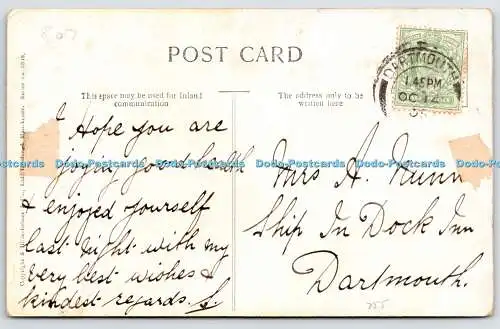 POST CARD
This space may be used for Inland
communication
The address only to be
written here
DARTMOUTH
7.45PM
OC 12
I Hope you are
good health
& enjoyed yourself
last night with my
very best wishes &
kindest regards.
Mrs A. Nunn
Ship In Dock Inn
Dartmouth.
Dodo-Postcards Dodo-Postcards Dodo-Postcards Dodo-Postcards Dodo-Postcards